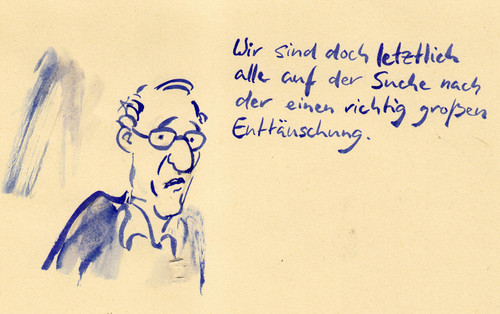 Wir sind doch letztlich
alle auf der Suche nach
der einen richtig großen
Enttäuschung.